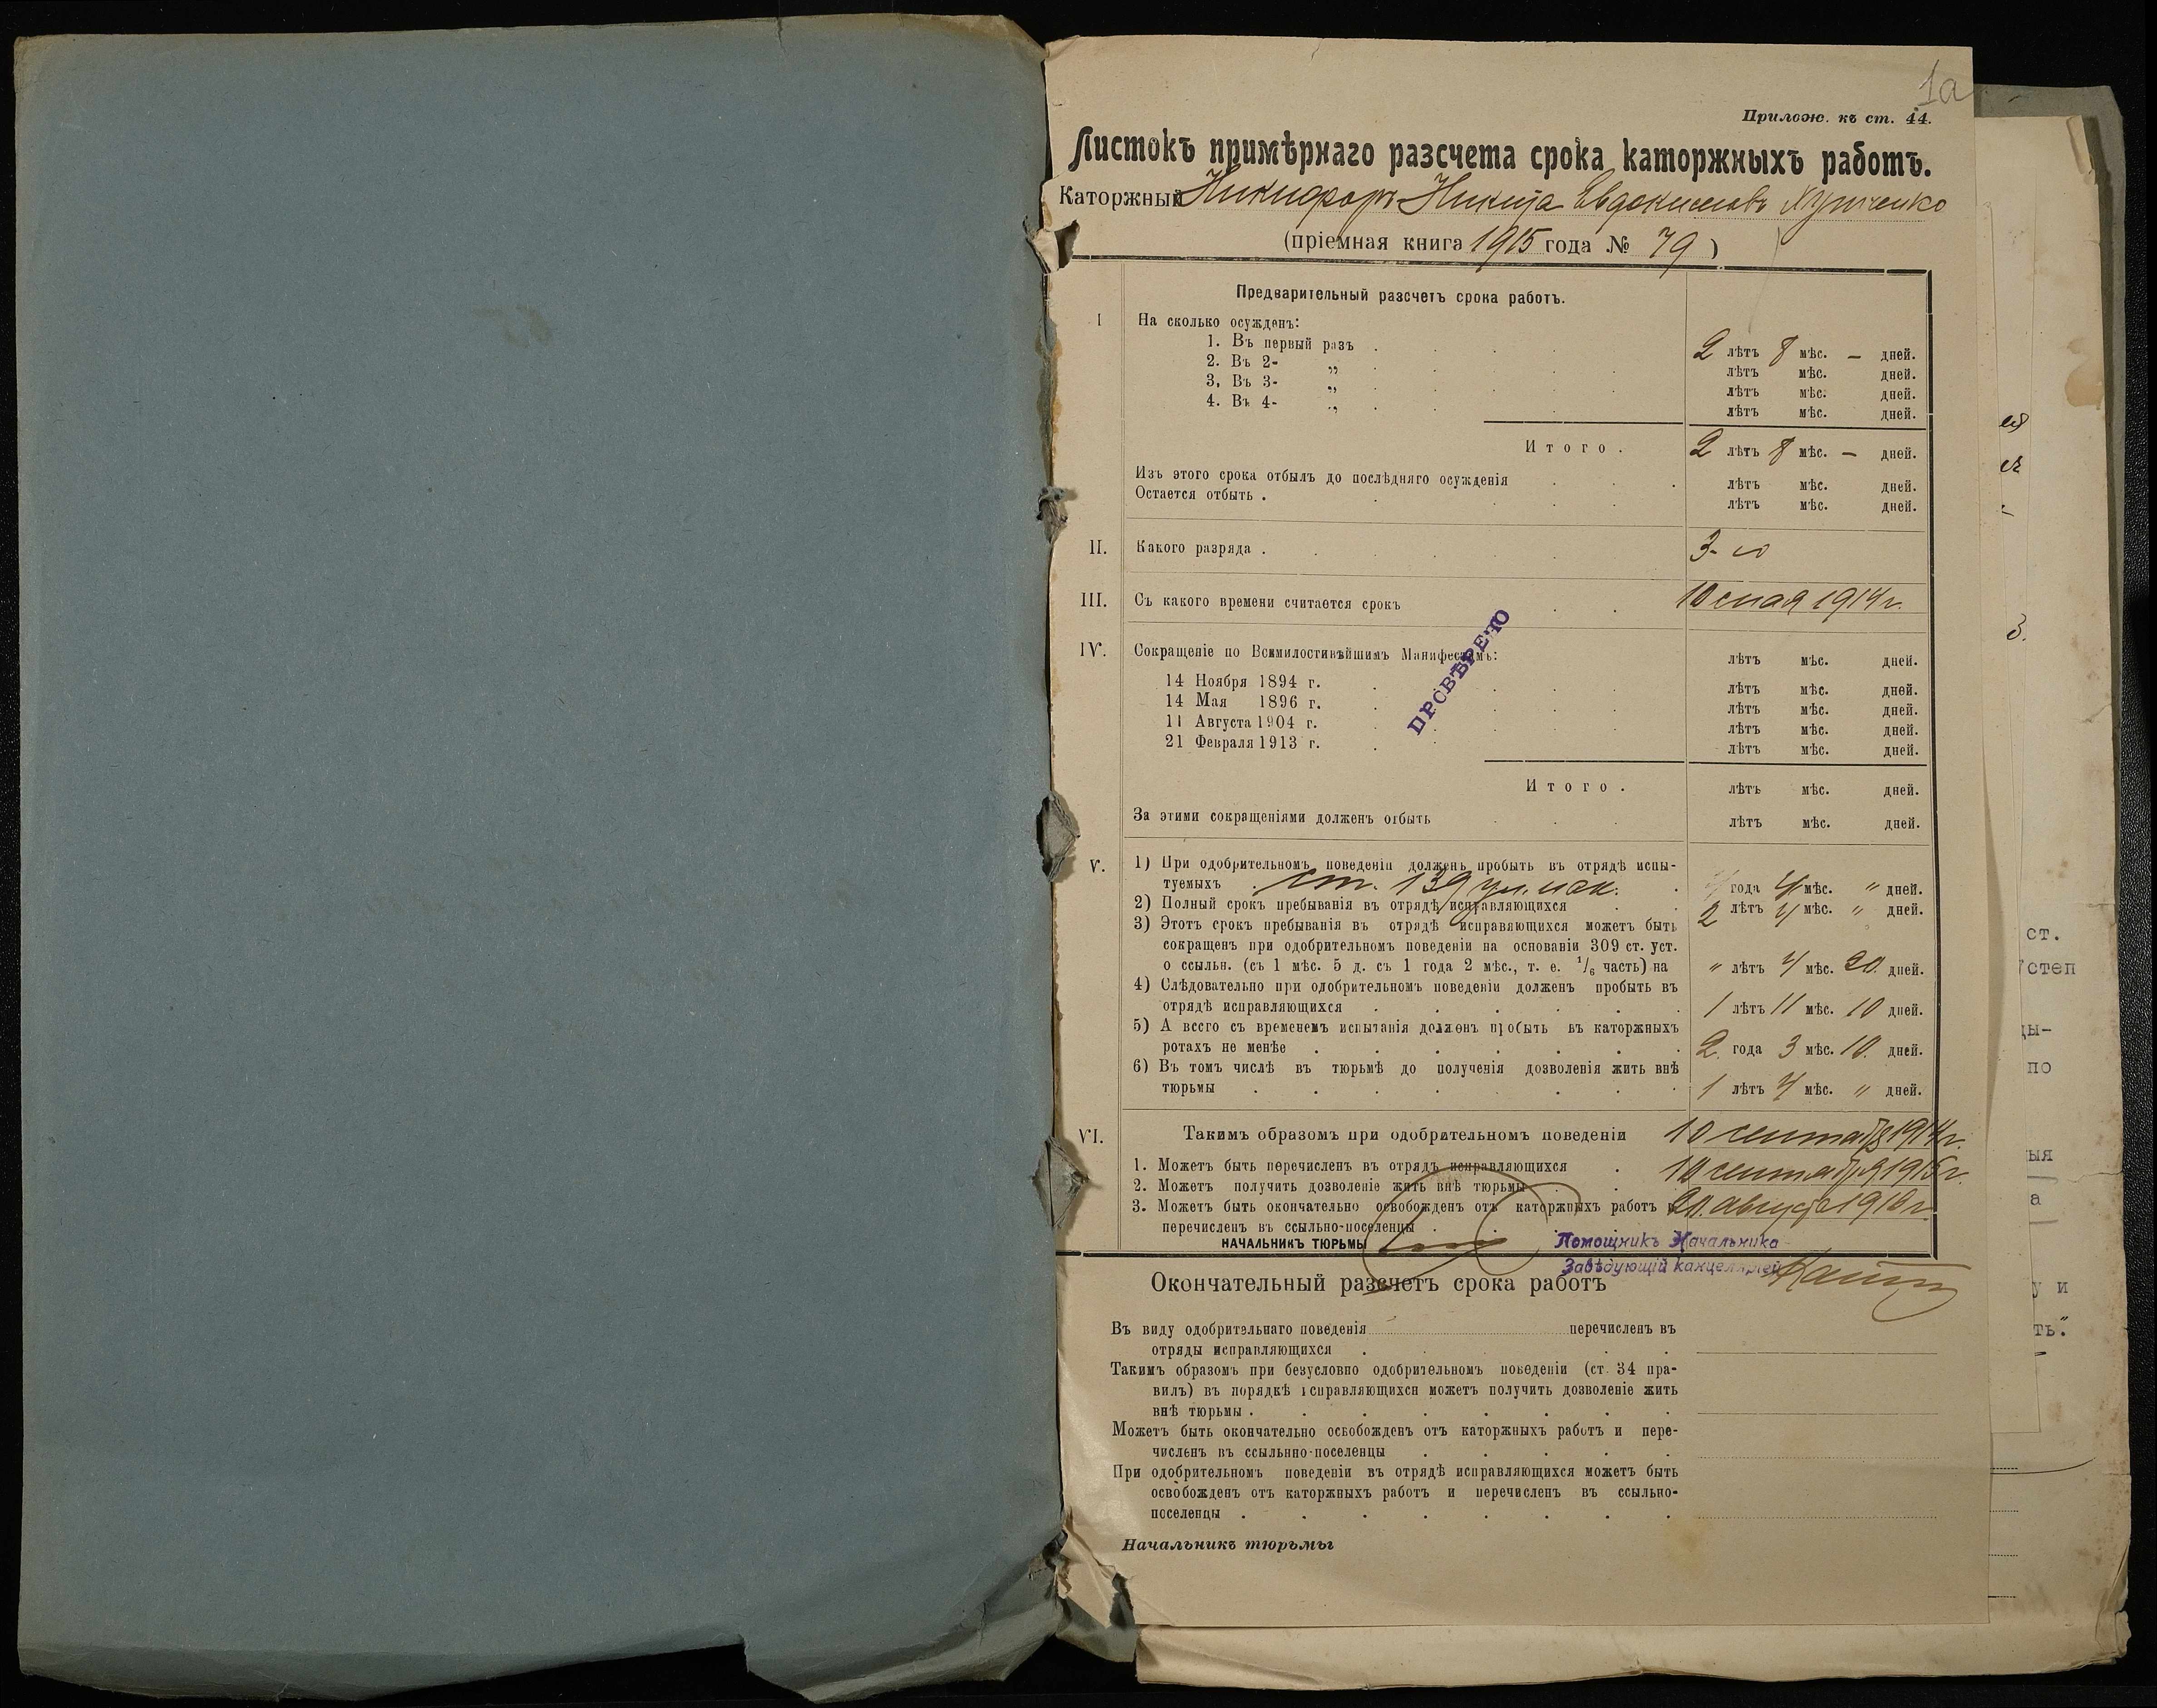 1а
Прилож. къ ст. 44.
Листокъ примѣрнаго разсчета срока каторжныхъ работъ.
Каторжный Никифоръ-Никита Евдокимовъ
(пріемная книга 1915 года № 79)
Предварительный разсчетъ срока работъ.
I На сколько осужденъ:
1. Въ первый разъ . . . . 2 лѣтъ 8 мѣс. — дней.
2. Въ 2- „ . . . . лѣтъ мѣс. дней.
3. Въ 3- „ . . . . лѣтъ мѣс. дней.
4. Въ 4- „ . . . . лѣтъ мѣс. дней.
Итого. 2 лѣтъ 8 мѣс. — дней.
Изъ этого срока отбылъ до послѣдняго осужденія . . . лѣтъ мѣс. дней.
Остается отбыть . . . . лѣтъ мѣс. дней.
II. Какого разряда . . . . . 3-го
III. Съ какого времени считается срокъ . . 10 мая 1914 г.
IV. Сокращеніе по Всемилостивѣйшимъ Манифестамъ: лѣтъ мѣс. дней.
14 Ноября 1894 г. . . . . лѣтъ мѣс. дней.
14 Мая 1896 г. . . . . лѣтъ мѣс. дней.
11 Августа 1904 г. . . . . лѣтъ мѣс. дней.
21 Февраля 1913 г. . . лѣтъ мѣс. дней.
ПРОВѢРЕНО
Итого. лѣтъ мѣс. дней.
За этими сокращеніями долженъ отбыть . . . лѣтъ мѣс. дней.
V. 1) При одобрительномъ поведеніи долженъ пробыть въ отрядѣ испы-
туемыхъ . ст. 139 . года 4 мѣс. " дней.
2) Полный срокъ пребыванія въ отрядѣ исправляющихся . . 2 лѣтъ 4 мѣс. " дней.
3) Этотъ срокъ пребыванія въ отрядѣ исправляющихся можетъ быть
сокращенъ при одобрительномъ поведеніи на основаніи 309 ст. уст.
о ссыльн. (съ 1 мѣс. 5 д. съ 1 года 2 мѣс., т. е. 1/6 часть) на " лѣтъ 4 мѣс. 20 дней.
4) Слѣдовательно при одобрительномъ поведеніи долженъ пробыть въ
отрядѣ исправляющихся . . . . . . 1 лѣтъ 11 мѣс. 10 дней.
5) А всего съ временемъ испытанія долженъ пробыть въ каторжныхъ
ротахъ не менѣе . . . . . . . 2 года 3 мѣс. 10 дней.
6) Въ томъ числѣ въ тюрьмѣ до полученія дозволенія жить внѣ
тюрьмы . . . . . . . . 1 лѣтъ 4 мѣс. " дней.
VI. Такимъ образомъ при одобрительномъ поведеніи 10 сентября 1914 г.
1. Можетъ быть перечисленъ въ отрядъ исправляющихся . 10 сентября 1915 г.
2. Можетъ получить дозволеніе жить внѣ тюрьмы . . .
3. Можетъ быть окончательно освобожденъ отъ каторжныхъ работъ и 20 августа 1916 г.
перечисленъ въ ссыльно-поселенцы . . .
НАЧАЛЬНИКЪ ТЮРЬМЫ Помощникъ Начальника
Завѣдующій канцеляріей
Окончательный разсчетъ срока работъ
Въ виду одобрительнаго поведенія перечисленъ въ
отряды исправляющихся . . . .
Такимъ образомъ при безусловно одобрительномъ поведеніи (ст. 34 пра-
вилъ) въ порядкѣ исправляющихся можетъ получить дозволеніе жить
внѣ тюрьмы . . . . . . . .
Можетъ быть окончательно освобожденъ отъ каторжныхъ работъ и пере-
численъ въ ссыльнно-поселенцы . . . . .
При одобрительномъ поведеніи въ отрядѣ исправляющихся можетъ быть
освобожденъ отъ каторжныхъ работъ и перечисленъ въ ссыльно-
поселенцы . . . . . . . .
Начальникъ тюрьмы
ст.
степ
ды-
по
ыя
а
у и
ть".